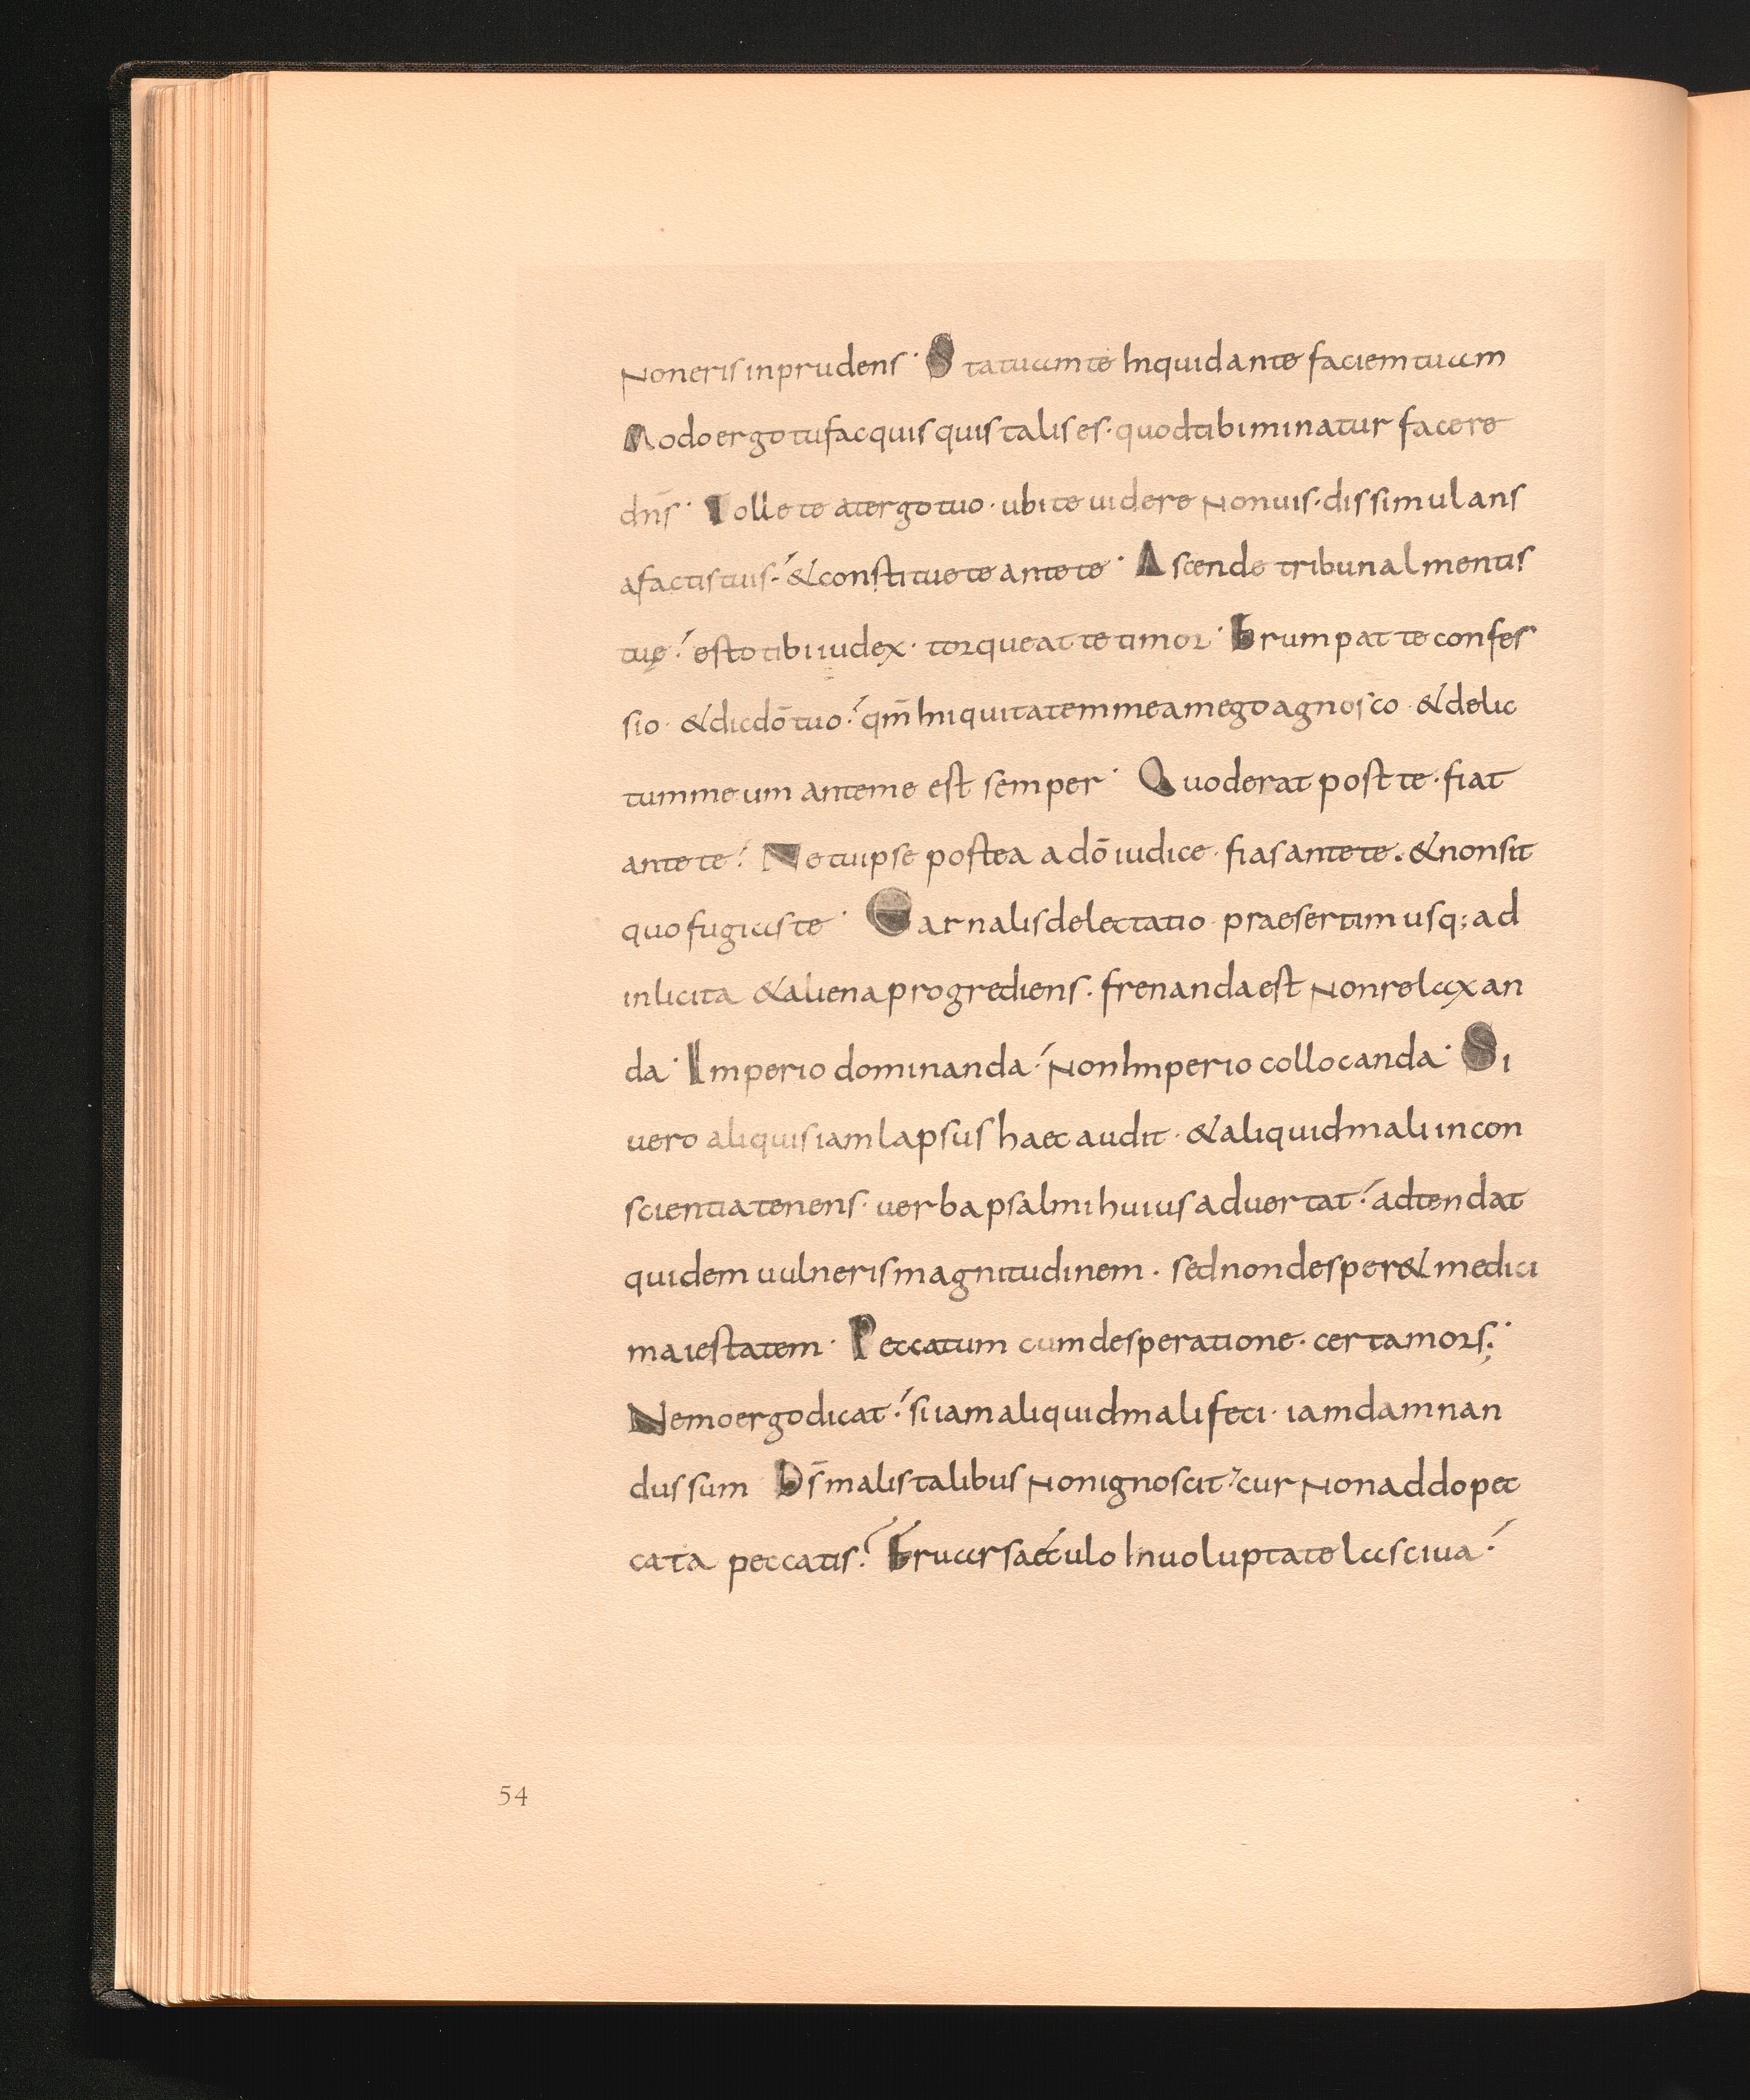 Non eris inprudens· Statuam te inquid ante faciem tuam
Modo ergo tu fac quis quis talis es· quod tibi minatur facere
dn̄s· Tolle te a tergo tuo· ubi te uidere non uis· dissimulans
a factis tuis· & constitue te ante te· Ascende tribunal mentis
tuę· esto tibi iudex· torqueat te timor· Erumpat te confes
sio· & dic dō tuo· qm̄ iniquitatem meam ego agnosco· & delic
tum meum ante me est semper· Quod erat post te· fiat
ante te· Ne tu ipse postea a dō iudice· fias ante te· & non sit
quo fugias te· Carnalis delectatio· praesertim usq; ad
inlicita & aliena progrediens· frenanda est non relaxan
da· Imperio dominanda· non imperio collocanda· Si
uero aliquis iam lapsus haec audit· & aliquid mali in con
scientia tenens· uerba psalmi huius aduertat· adtendat
quidem uulneris magnitudinem· sed non desper& medici
maiestatem· Peccatum cum desperatione· certa mors;
Nemo ergo dicat· si iam aliquid mali feci· iam damnan
dus sum Ds̄ malis talibus non ignoscit· cur non addo pec
cata peccatis? Fruar saeculo in uoluptate lasciua·
54